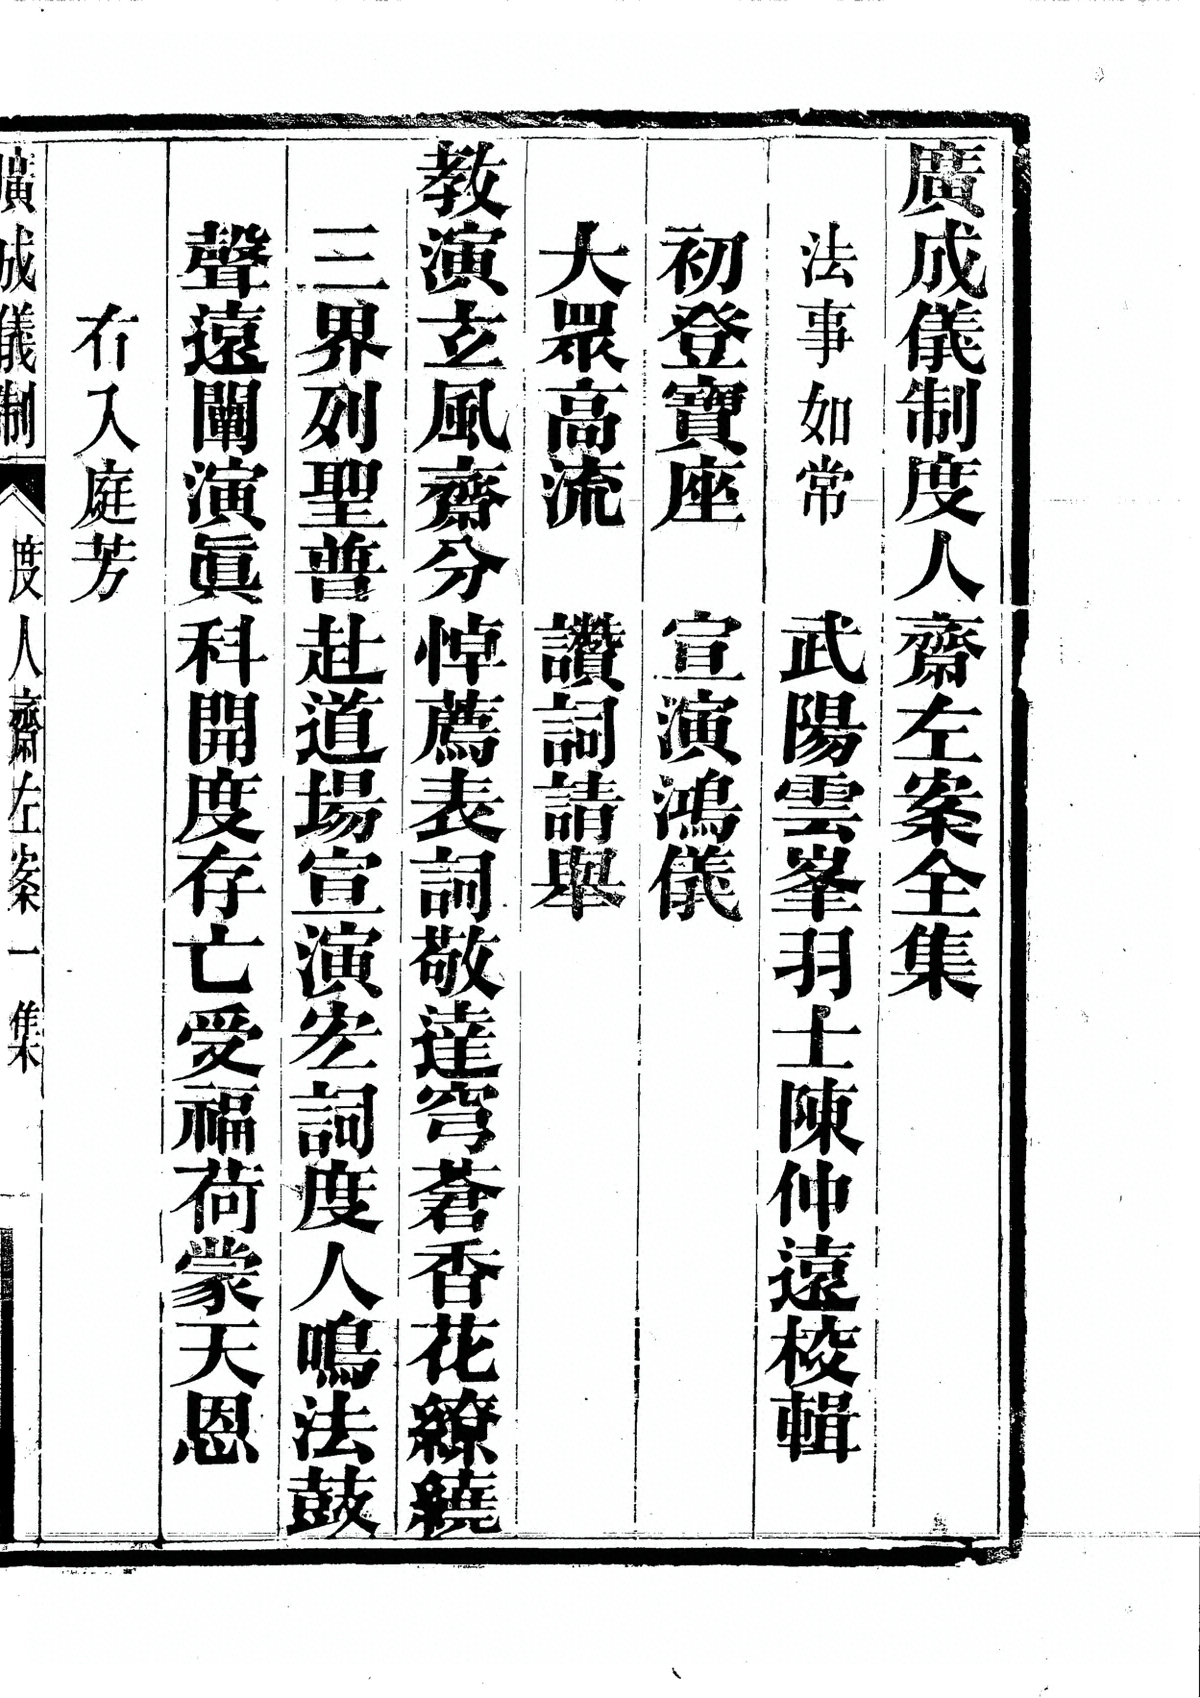 廣成儀制度人齋左案全集
法事如常　武陽雲峯羽士陳仲遠校輯
初登寶座　宣演鴻儀
大眾高流　讚詞請舉
教演玄風齋分悼薦表詞敬達穹蒼香花繚繞
三界列聖普赴道場宣演宏詞度人鳴法鼓
聲遠闡演眞科開度存亡受福荷蒙天恩
右入庭芳
廣成儀制　度人齋左案一集　一